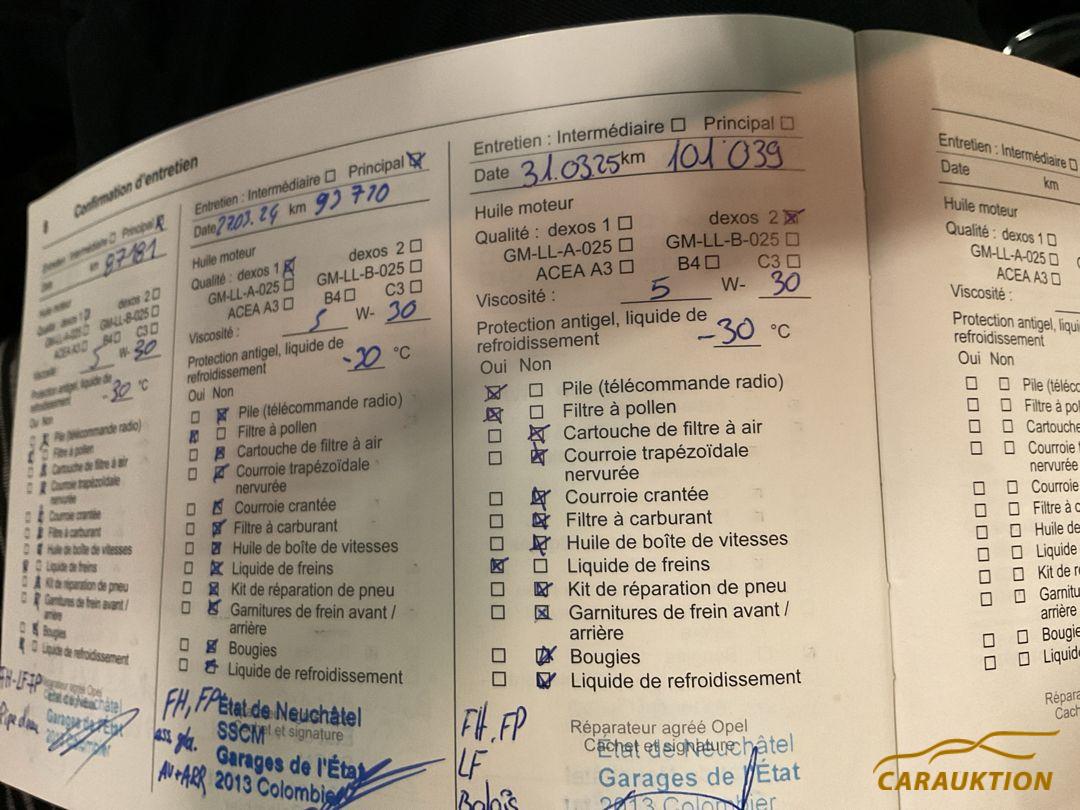 8
Confirmation d'entretien
Entretien : Intermédiaire Principal
Date
km 87181
Huile moteur
dexos 2
Qualité : dexos 1
GM-LL-A-025 GM-LL-B-025
ACEA A3 B4 C3
Viscosité : 5 W- 30
Protection antigel, liquide de
refroidissement -30 °C
Oui Non
Pile (télécommande radio)
Filtre à pollen
Cartouche de filtre à air
Courroie trapézoïdale
nervurée
Courroie crantée
Filtre à carburant
Huile de boîte de vitesses
Liquide de freins
Kit de réparation de pneu
Garnitures de frein avant /
arrière
Bougies
Liquide de refroidissement
FH-LF-FP
Réparateur agréé Opel
Etat de Neuchâtel
Garages de l'Etat
2013 Colombier
Entretien : Intermédiaire Principal
Date 27.03.24 km 93 770
Huile moteur
dexos 2
Qualité : dexos 1
GM-LL-A-025 GM-LL-B-025
ACEA A3 B4 C3
Viscosité : 5 W- 30
Protection antigel, liquide de
refroidissement -30 °C
Oui Non
Pile (télécommande radio)
Filtre à pollen
Cartouche de filtre à air
Courroie trapézoïdale
nervurée
Courroie crantée
Filtre à carburant
Huile de boîte de vitesses
Liquide de freins
Kit de réparation de pneu
Garnitures de frein avant /
arrière
Bougies
Liquide de refroidissement
FH, FP
État de Neuchâtel
SSCM
Cachet et signature
ass gla.
Garages de l'État
AV+ARR
2013 Colombier
Entretien : Intermédiaire Principal
Date 31.03.25 km 101'039
Huile moteur
Qualité : dexos 1 dexos 2
GM-LL-A-025 GM-LL-B-025
ACEA A3 B4 C3
Viscosité : 5 W- 30
Protection antigel, liquide de
refroidissement -30 °C
Oui Non
Pile (télécommande radio)
Filtre à pollen
Cartouche de filtre à air
Courroie trapézoïdale
nervurée
Courroie crantée
Filtre à carburant
Huile de boîte de vitesses
Liquide de freins
Kit de réparation de pneu
Garnitures de frein avant /
arrière
Bougies
Liquide de refroidissement
FH, FP
LF
Balais
Réparateur agréé Opel
Cachet et signature
État de Neuchâtel
Garages de l'État
2013 Colombier
Entretien : Intermédiaire
Date km
Huile moteur
Qualité : dexos 1
GM-LL-A-025
ACEA A3
Viscosité :
Protection antigel, liqui
refroidissement
Oui Non
Pile (téléco
Filtre à po
Cartouche
Courroie t
nervurée
Courroie
Filtre à c
Huile de
Liquide
Kit de r
Garnitu
arrière
Bougie
Liquid
Répara
Cach
CARAUKTION